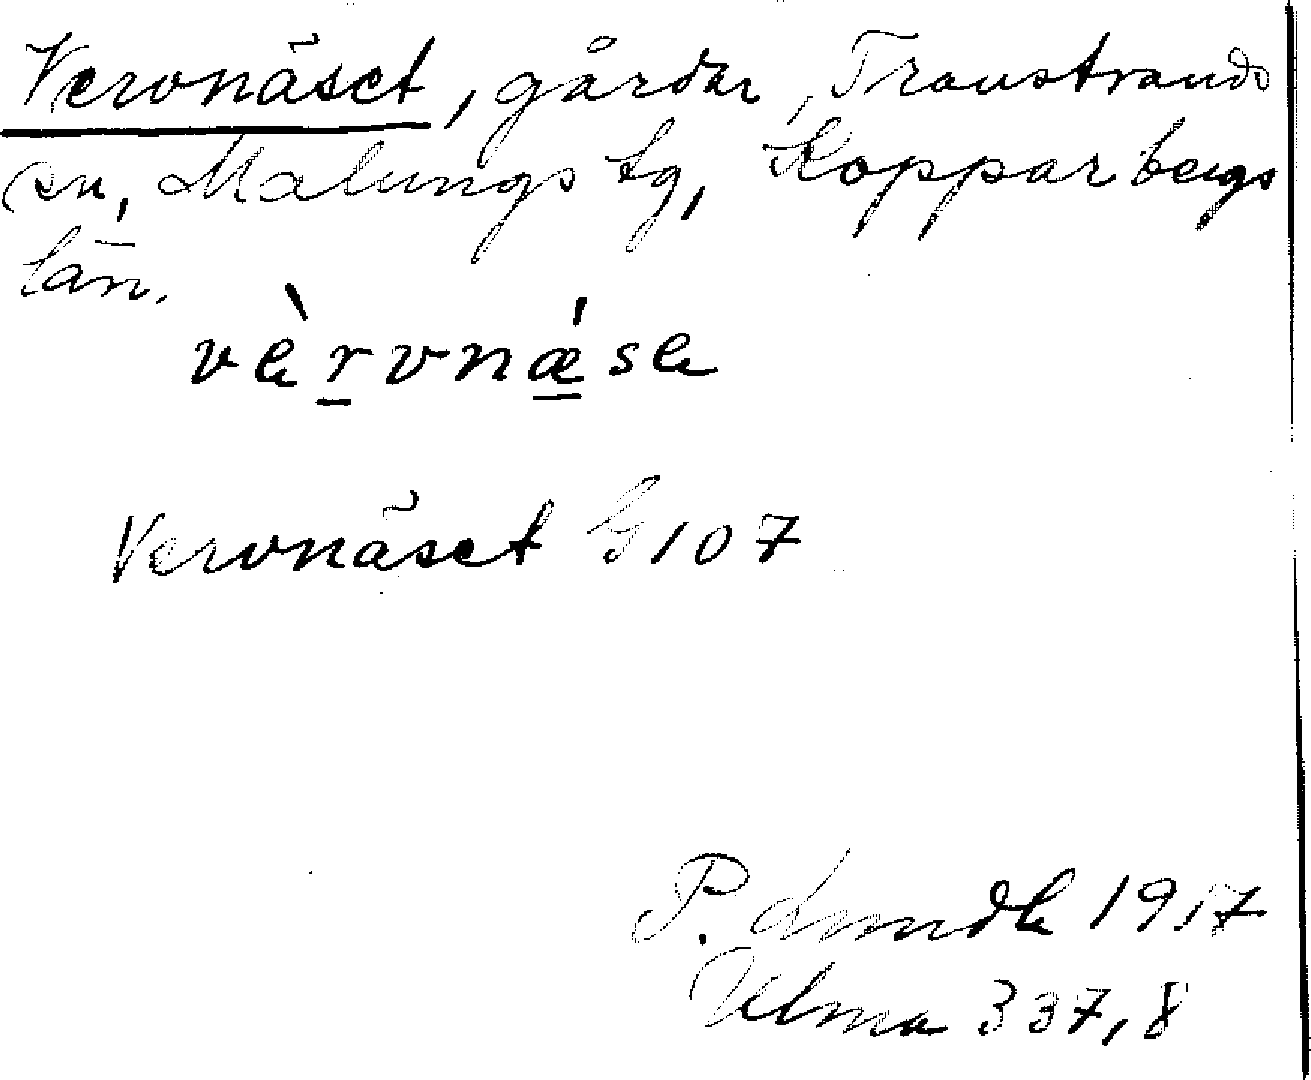 Vervnäset, gårdar, Transtrands
sn, Malungs tg, Kopparbergs
län.
vèrvnǽse
Vervnäset G 107
P. Lindh 1917
Ulma 337,8